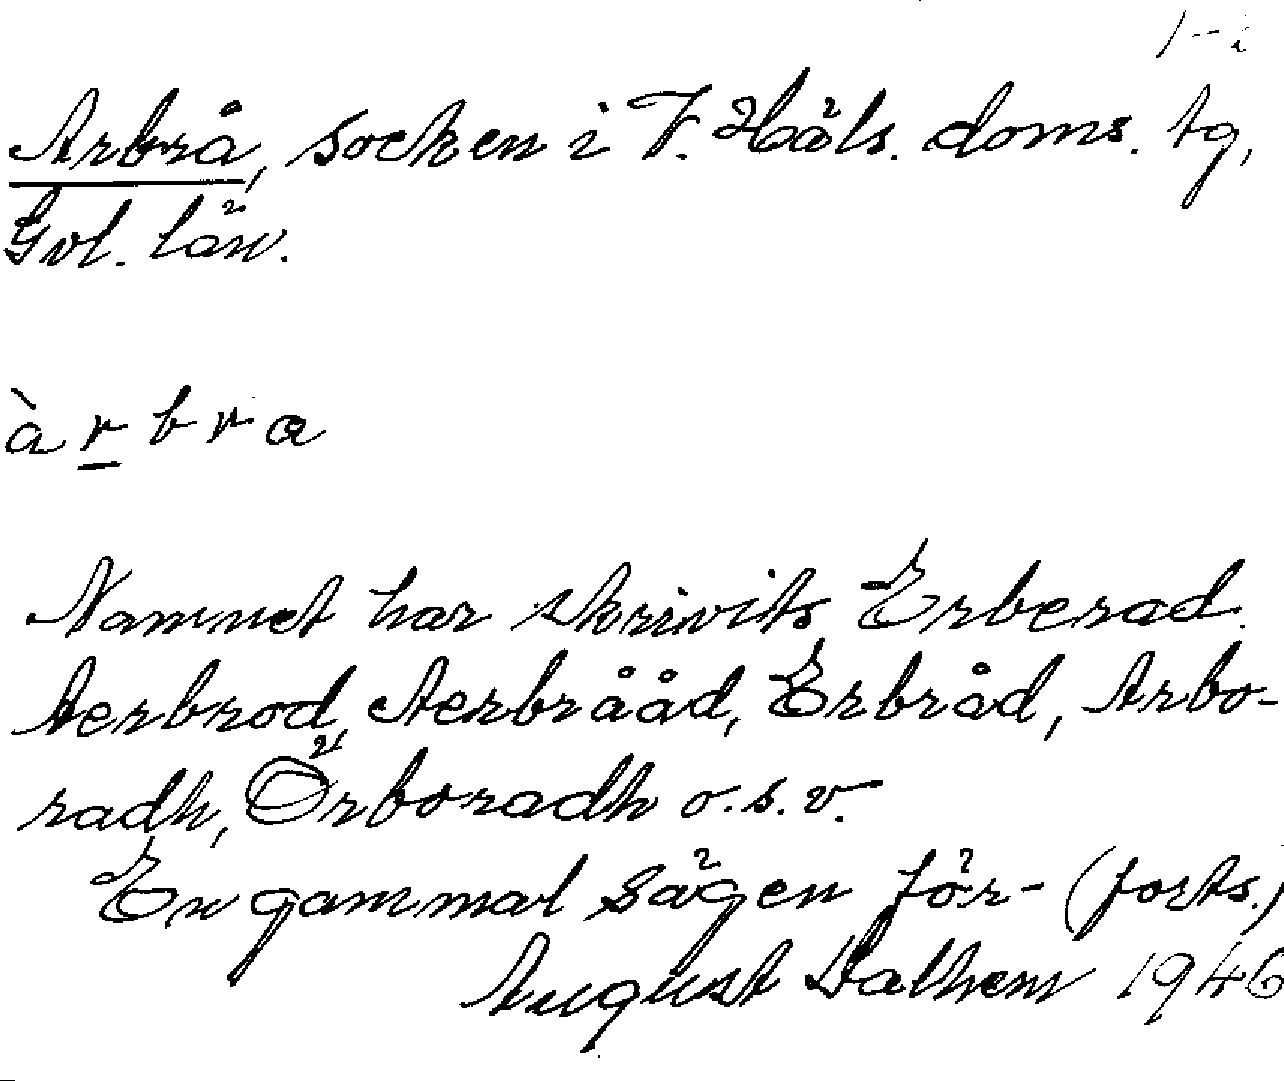 1-2
Arbrå, socken i V. Häls. doms. tg,
Gvl. län.
àrbra
Namnet har skrivits Erberad.
Aerbrod, Aerbrååd, Erbråd, Arbo-
radh, Örboradh o.s.v.
En gammal sägen för- (forts.)
August Dalhem 1946